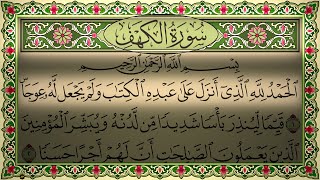 سُورَةُ الكَهْفِ
بِسْمِ اللَّهِ الرَّحْمَٰنِ الرَّحِيمِ
الْحَمْدُ لِلَّهِ الَّذِي أَنزَلَ عَلَىٰ عَبْدِهِ الْكِتَٰبَ وَلَمْ يَجْعَل لَّهُ عِوَجًا
قَيِّمًا لِّيُنذِرَ بَأْسًا شَدِيدًا مِّن لَّدُنْهُ وَيُبَشِّرَ الْمُؤْمِنِينَ
الَّذِينَ يَعْمَلُونَ الصَّٰلِحَٰتِ أَنَّ لَهُمْ أَجْرًا حَسَنًا